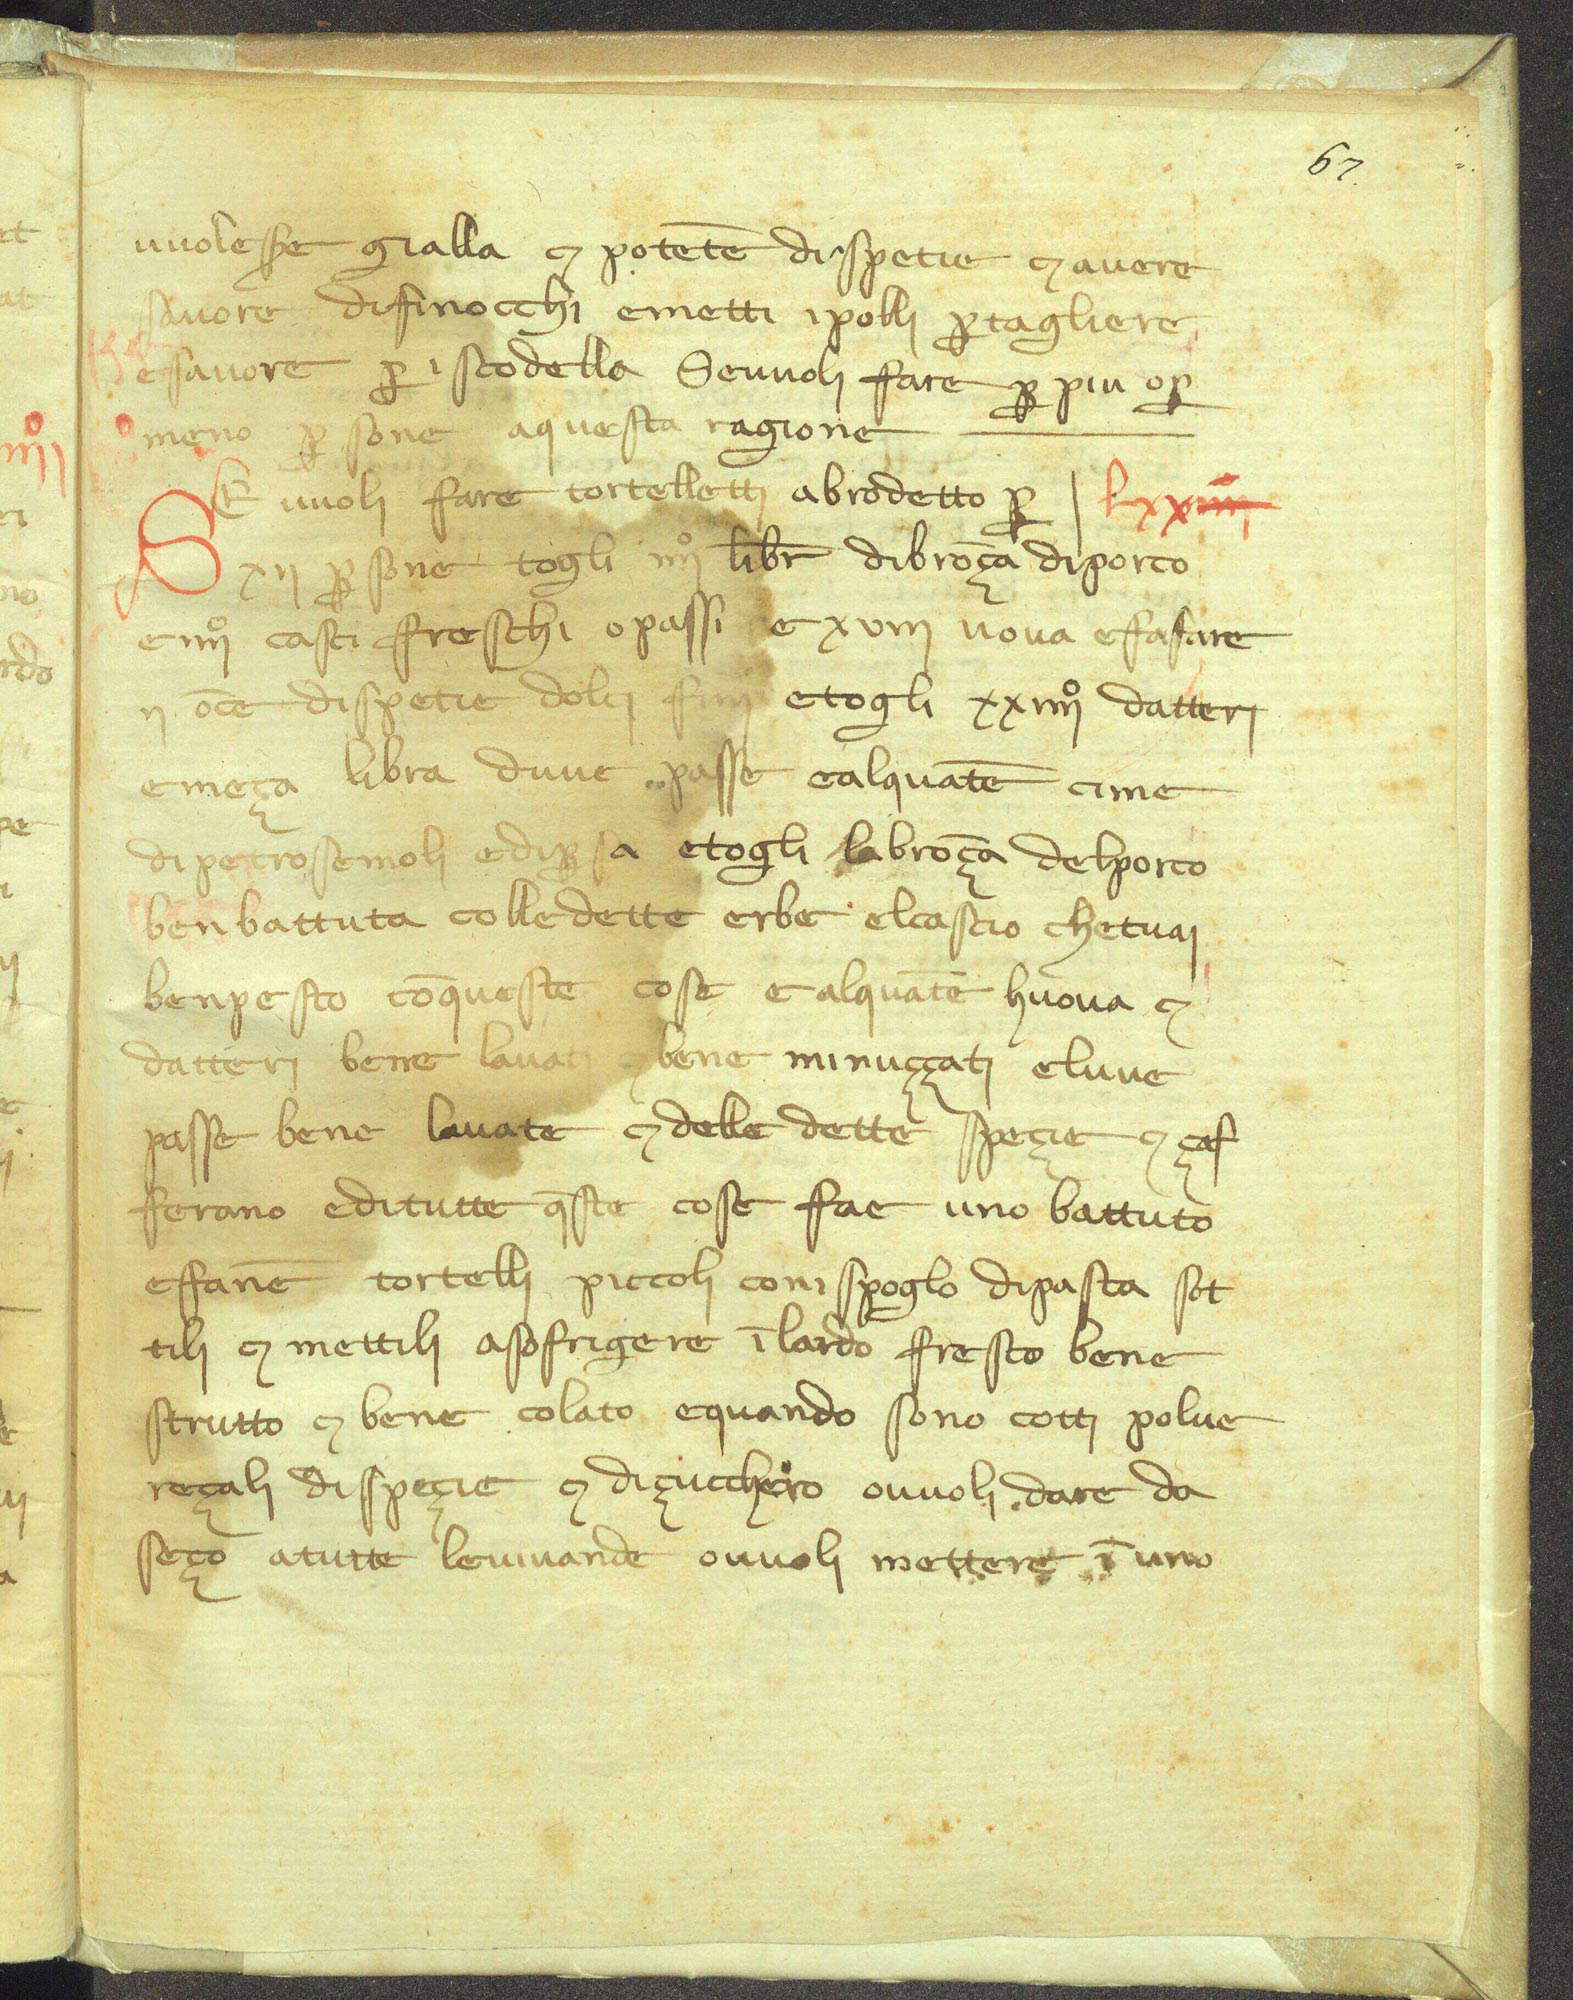 67.
vuolesse gialla ⁊ potētē di spetie ⁊ avere
savore difinocchi emetti ipolli ꝑtagliere
esavore ꝑ iscodella Sevuoli fare ꝑ piu oꝑ
meno ꝑsone aquesta ragione
SE vuoli fare tortelletti abrodetto ꝑ lxxiiii
xij ꝑsone togli iiijº libr̄ dibrōça diporco
e iiijº casci freschi opassi e xviii uova efafare
ij ōce dispetie dolci fini etogli xxiiijº datteri
emeça libra duve passe ealquātē cime
dipetrosemoli ediꝑsa etogli labrōça delporco
benbattuta colledette erbe elcascio chetuaj
benpesto cōqueste cose ealquātē huova ⁊
datteri bene lavati ⁊ bene minuççatj eluve
passe bene lavate ⁊ delle dette speçie ⁊ çaf
ferano editutte q̄ste cose fae uno battuto
effanē tortelli piccoli conispoglo dipasta sot
tili ⁊ mettili asofrigere ī lardo fresco bene
strutto ⁊ bene colato equando sono cotti polve
reçali dispeçie ⁊ diçucchero ovuoli dare da
seço atutte levivande ovuoli mettere ī uno